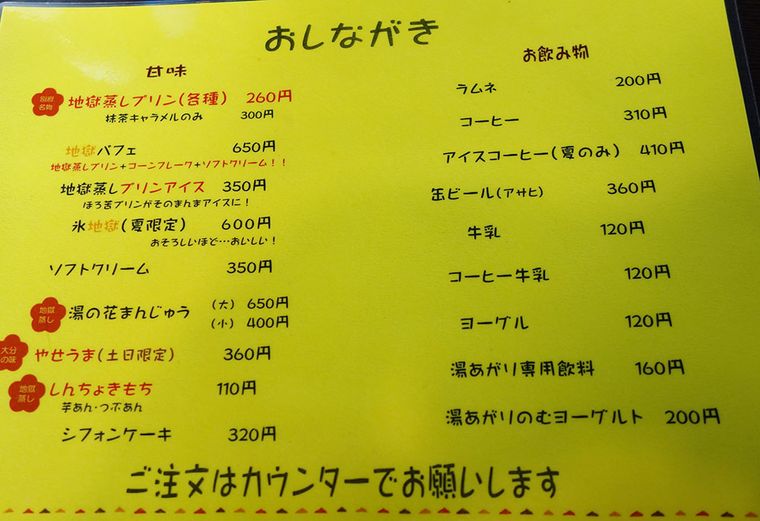 おしながき
甘味
別府名物
地獄蒸しプリン(各種) 260円
抹茶キャラメルのみ 300円
地獄パフェ 650円
地獄蒸しプリン+コーンフレーク+ソフトクリーム！！
地獄蒸しプリンアイス 350円
ほろ苦プリンがそのまんまアイスに！
氷地獄(夏限定) 600円
おそろしいほど…おいしい！
ソフトクリーム 350円
地獄蒸し
湯の花まんじゅう (大) 650円
(小) 400円
大分の味
やせうま(土日限定) 360円
地獄蒸し
しんちょきもち 110円
芋あん・つぶあん
シフォンケーキ 320円
お飲み物
ラムネ 200円
コーヒー 310円
アイスコーヒー(夏のみ) 410円
缶ビール(アサヒ) 360円
牛乳 120円
コーヒー牛乳 120円
ヨーグル 120円
湯あがり専用飲料 160円
湯あがりのむヨーグルト 200円
ご注文はカウンターでお願いします